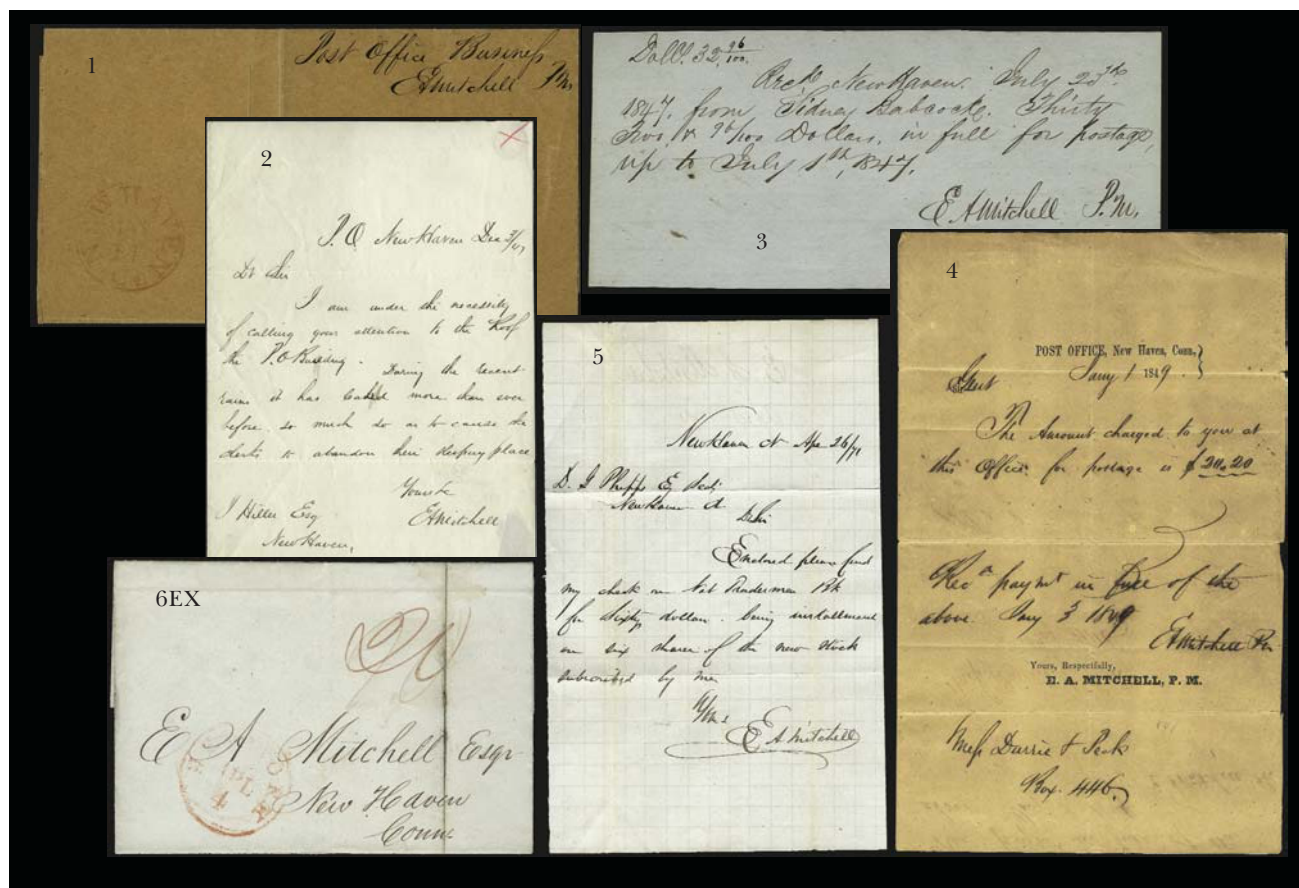 1
Post Office Business
EAMitchell P.M.
NEW HAVEN
2
P.O New Haven Dec 3/47
Dr Sir
I am under the necessity
of calling your attention to the Roof
the P.O Building. During the recent
rains it has leaked more than ever
before, so much so as to cause the
clerks to abandon their sleeping place
Yours &c
EAMitchell
J Hiller Esq
New Haven,
Doll. 32, 96/100.
Recd. New Haven. July 23rd
1847, from Sidney Babcock. Thirty
Two, & 96/100 Dollars, in full for postage,
up to July 1st, 1847.
E A Mitchell P.M.
3
4
POST OFFICE, New Haven, Conn.,
Jany 1 1849.
Gent
The Amount charged to you at
this Office for postage is $20.20
Recd paymt in full of the
above Jany 3 1849
EAMitchell Pm
Yours, Respectfully,
E. A. MITCHELL, P. M.
Mess Durrie & Peck
Box 446.
5
New Haven Ct Apr 26/71
D. G Phipps Esq
New Haven Ct.
D Sir
Enclosed please find
my check on Nat Bk
for Sixty dollars. being installment
on six shares of the new stock
subscribed by me
Yours
E A Mitchell
6EX
20
E A Mitchell Esqr
New Haven
Conn.
APL
4